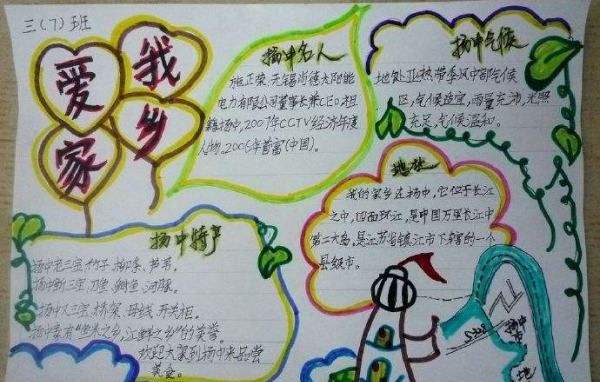 三（7）班
我爱家乡
扬中名人
施正荣，无锡尚德太阳能
电力有限公司董事长兼CEO，祖
籍扬中，2007年CCTV经济年度
人物，2006年首富（中国）。
扬中气候
地处亚热带季风中部气候
区，气候适宜，雨量充沛，光照
充足，气候温和。
地址
我的家乡在扬中，它位于长江
之中，四面环江，是中国万里长江中
第二大岛，是江苏省镇江市下辖的一个
县级市。
扬中特产
扬中老三宝，竹子、柳条、芦苇。
扬中新三宝，刀鱼、鲥鱼、河豚。
扬中又三宝，桥架、母线、开关柜。
扬中素有“鱼米之乡，江鲜之乡”的美誉。
欢迎大家到扬中来品尝
美食。
扬中市
地